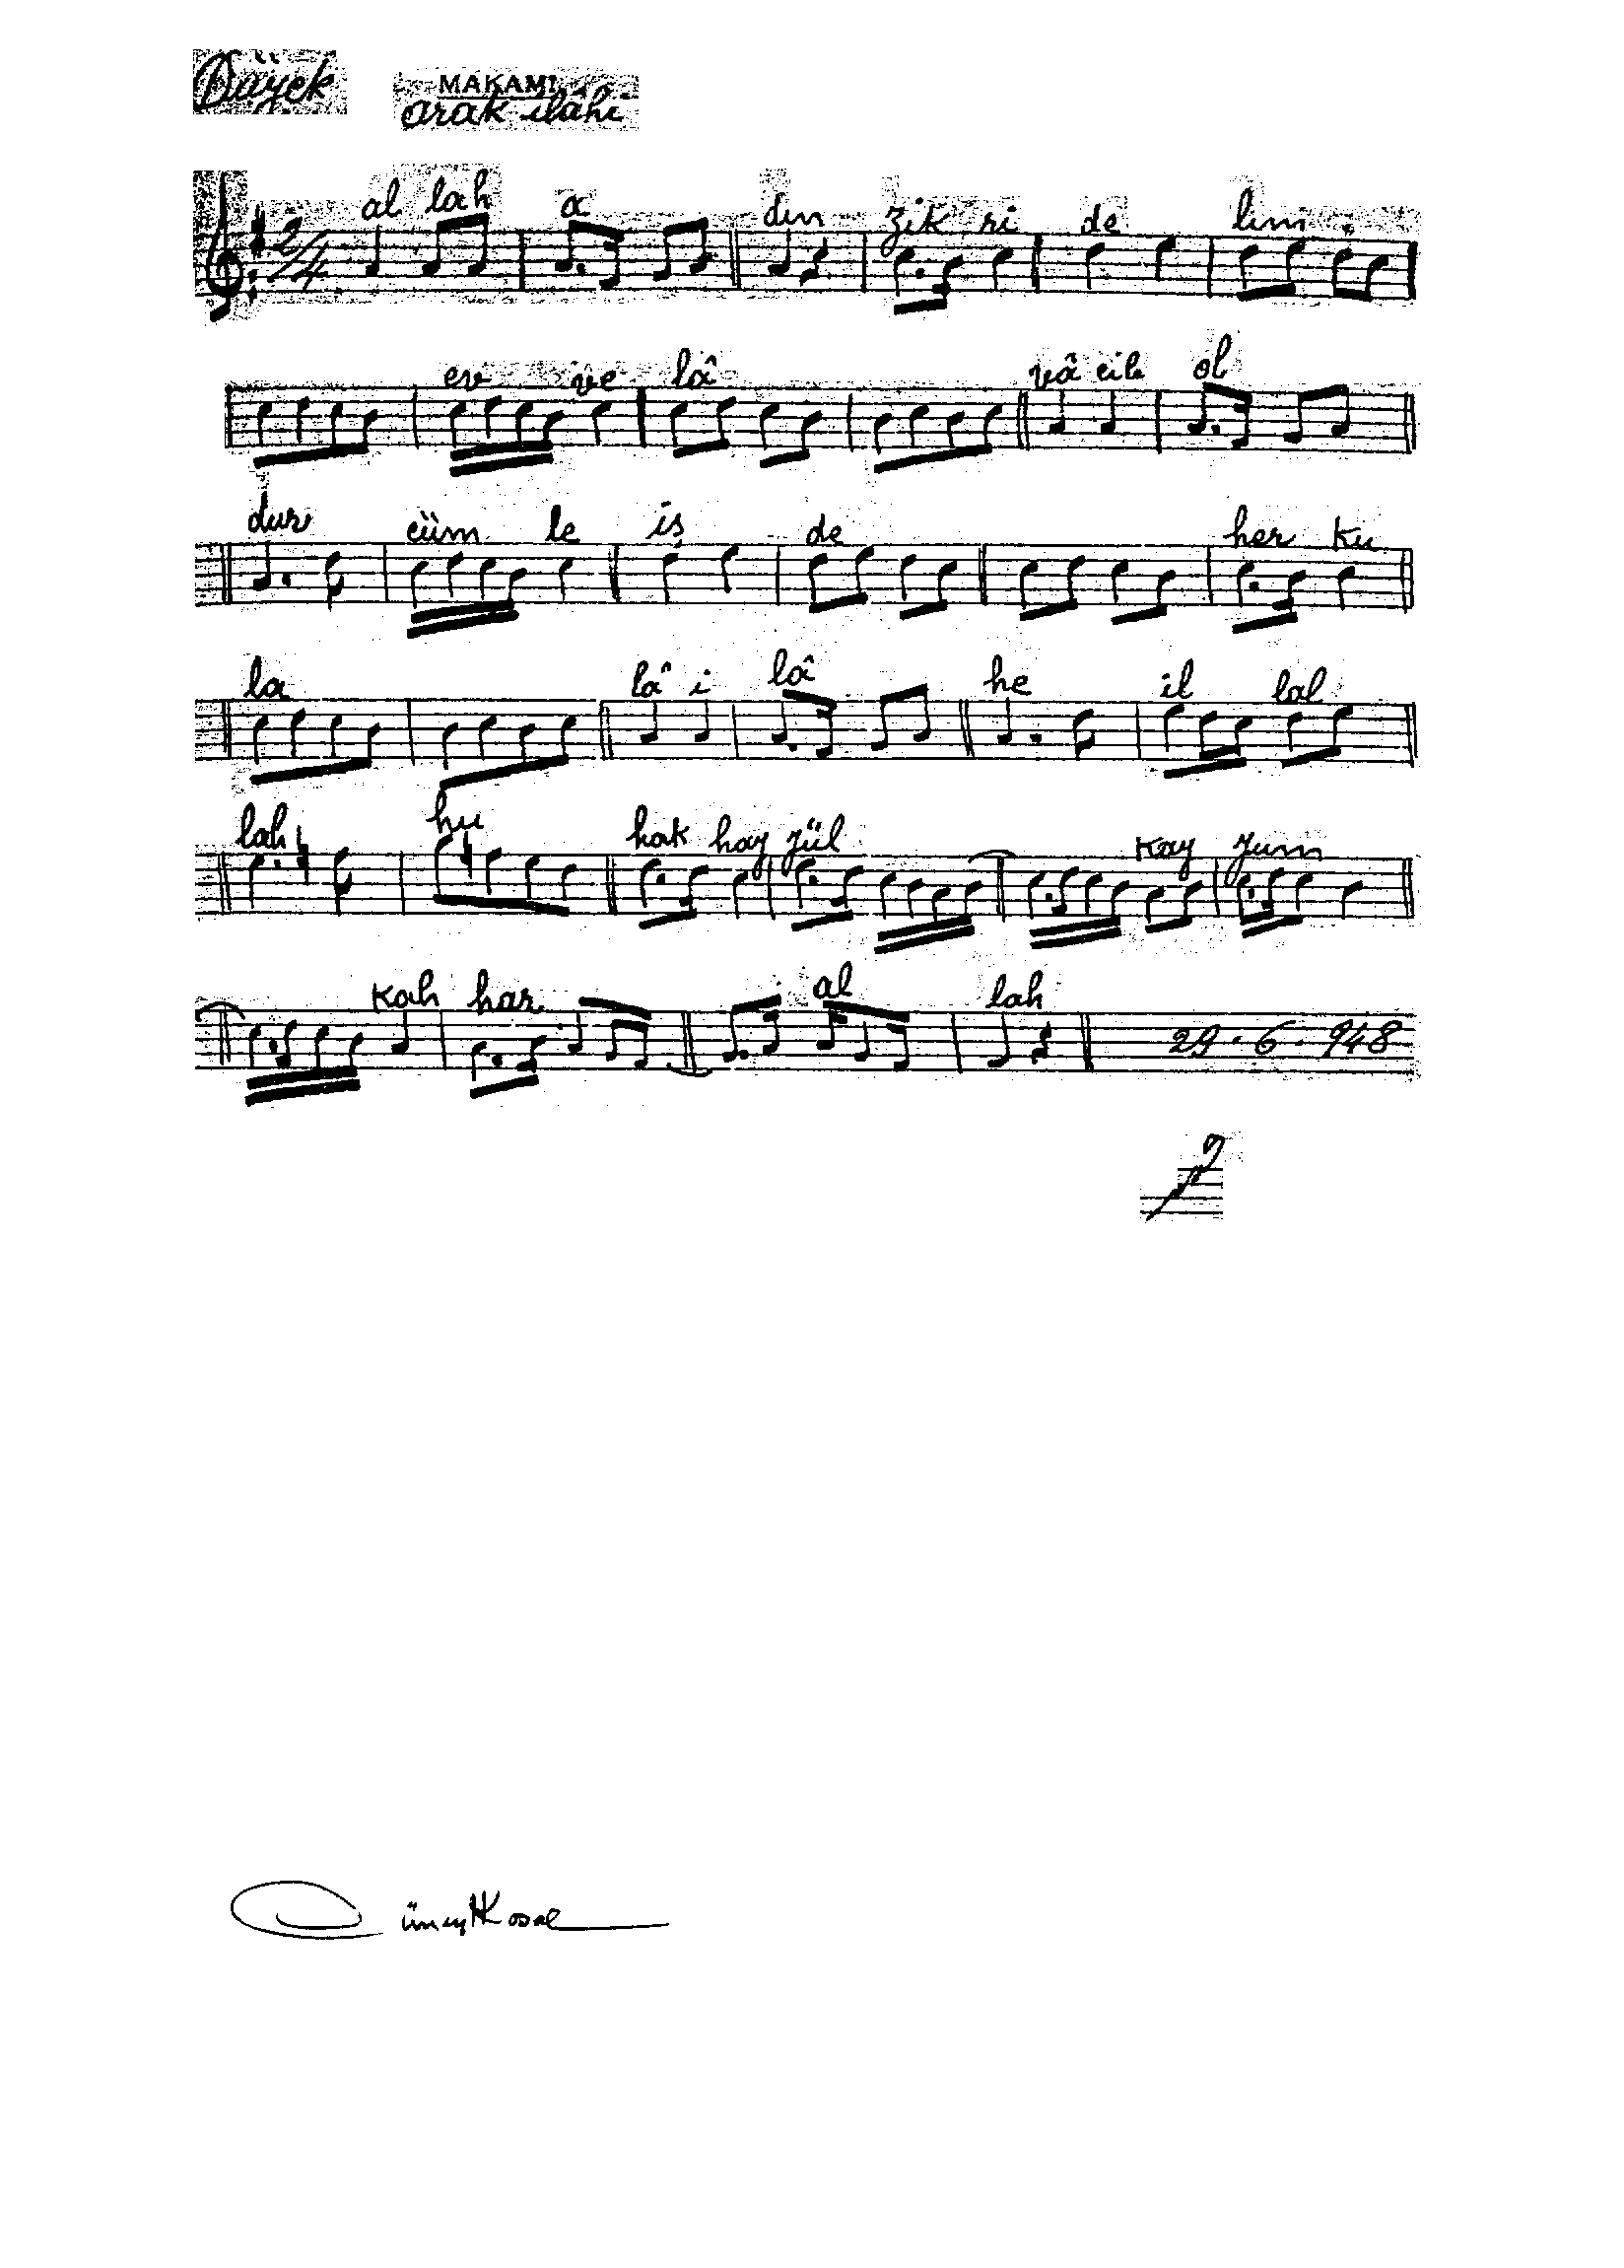 Düyek
MAKAMI
arak ilâhi
2/4 al lah a din zik ri de lim
ev ve lâ vâ cib ol
dur cüm le iş de her ku
la lâ i lâ he il lal
lah hu hak hay yül kay yum
kah har al lah 29.6.948